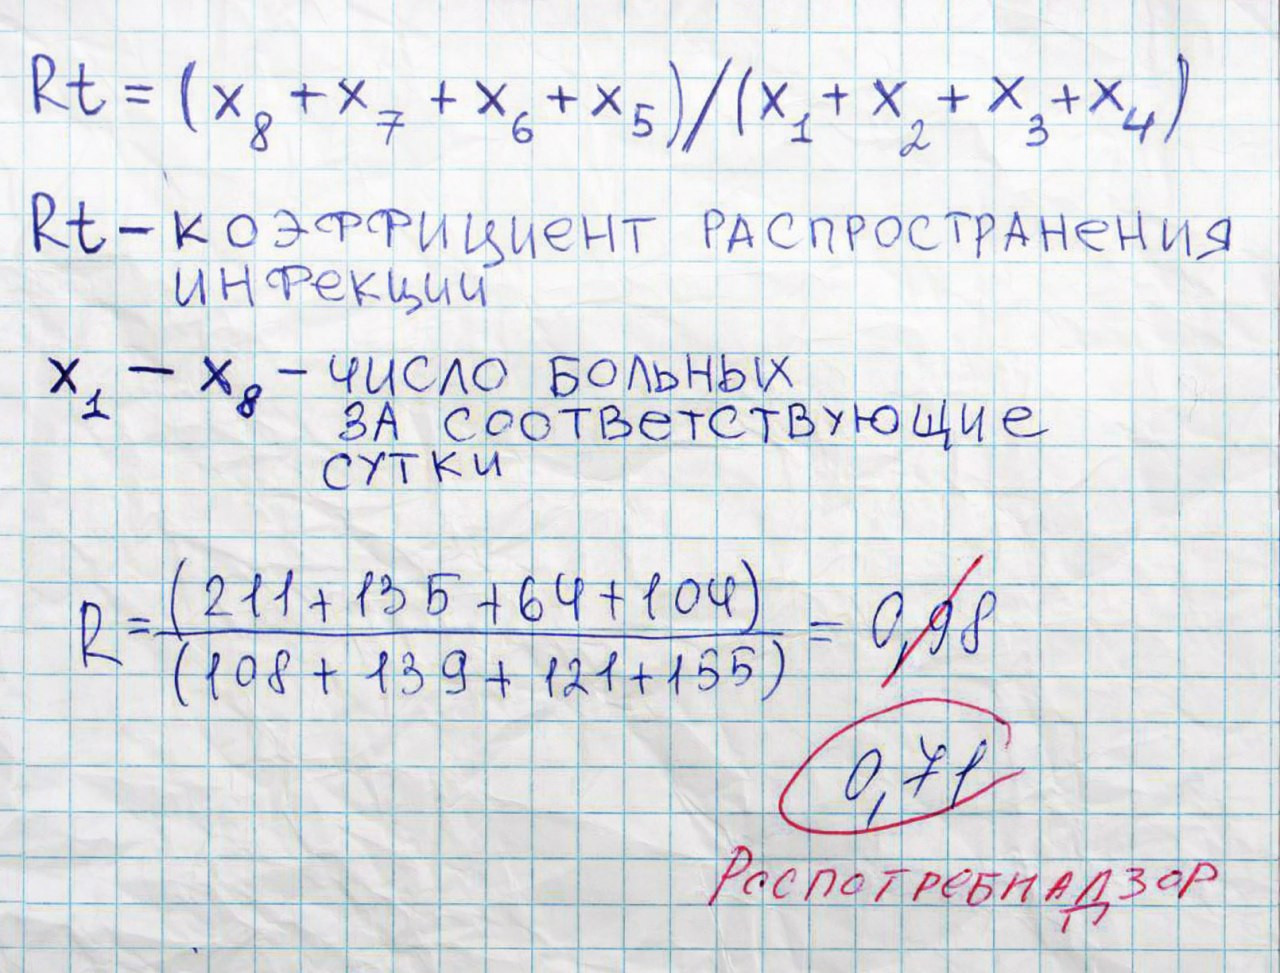 Rt = (x₈ + x₇ + x₆ + x₅)/(x₁ + x₂ + x₃ + x₄)
Rt – КОЭФФИЦИЕНТ РАСПРОСТРАНЕНИЯ
ИНФЕКЦИИ
x₁ – x₈ – ЧИСЛО БОЛЬНЫХ
ЗА СООТВЕТСТВУЮЩИЕ
СУТКИ
R = (211 + 135 + 64 + 104) / (108 + 139 + 121 + 155) = 0,98
0,71
РОСПОТРЕБНАДЗОР